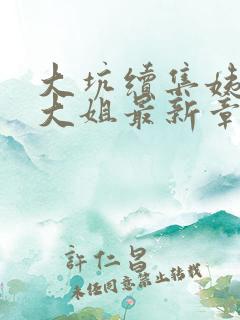 大坑续集姊
大姐最新章
許仁昌
未经同意禁止转载